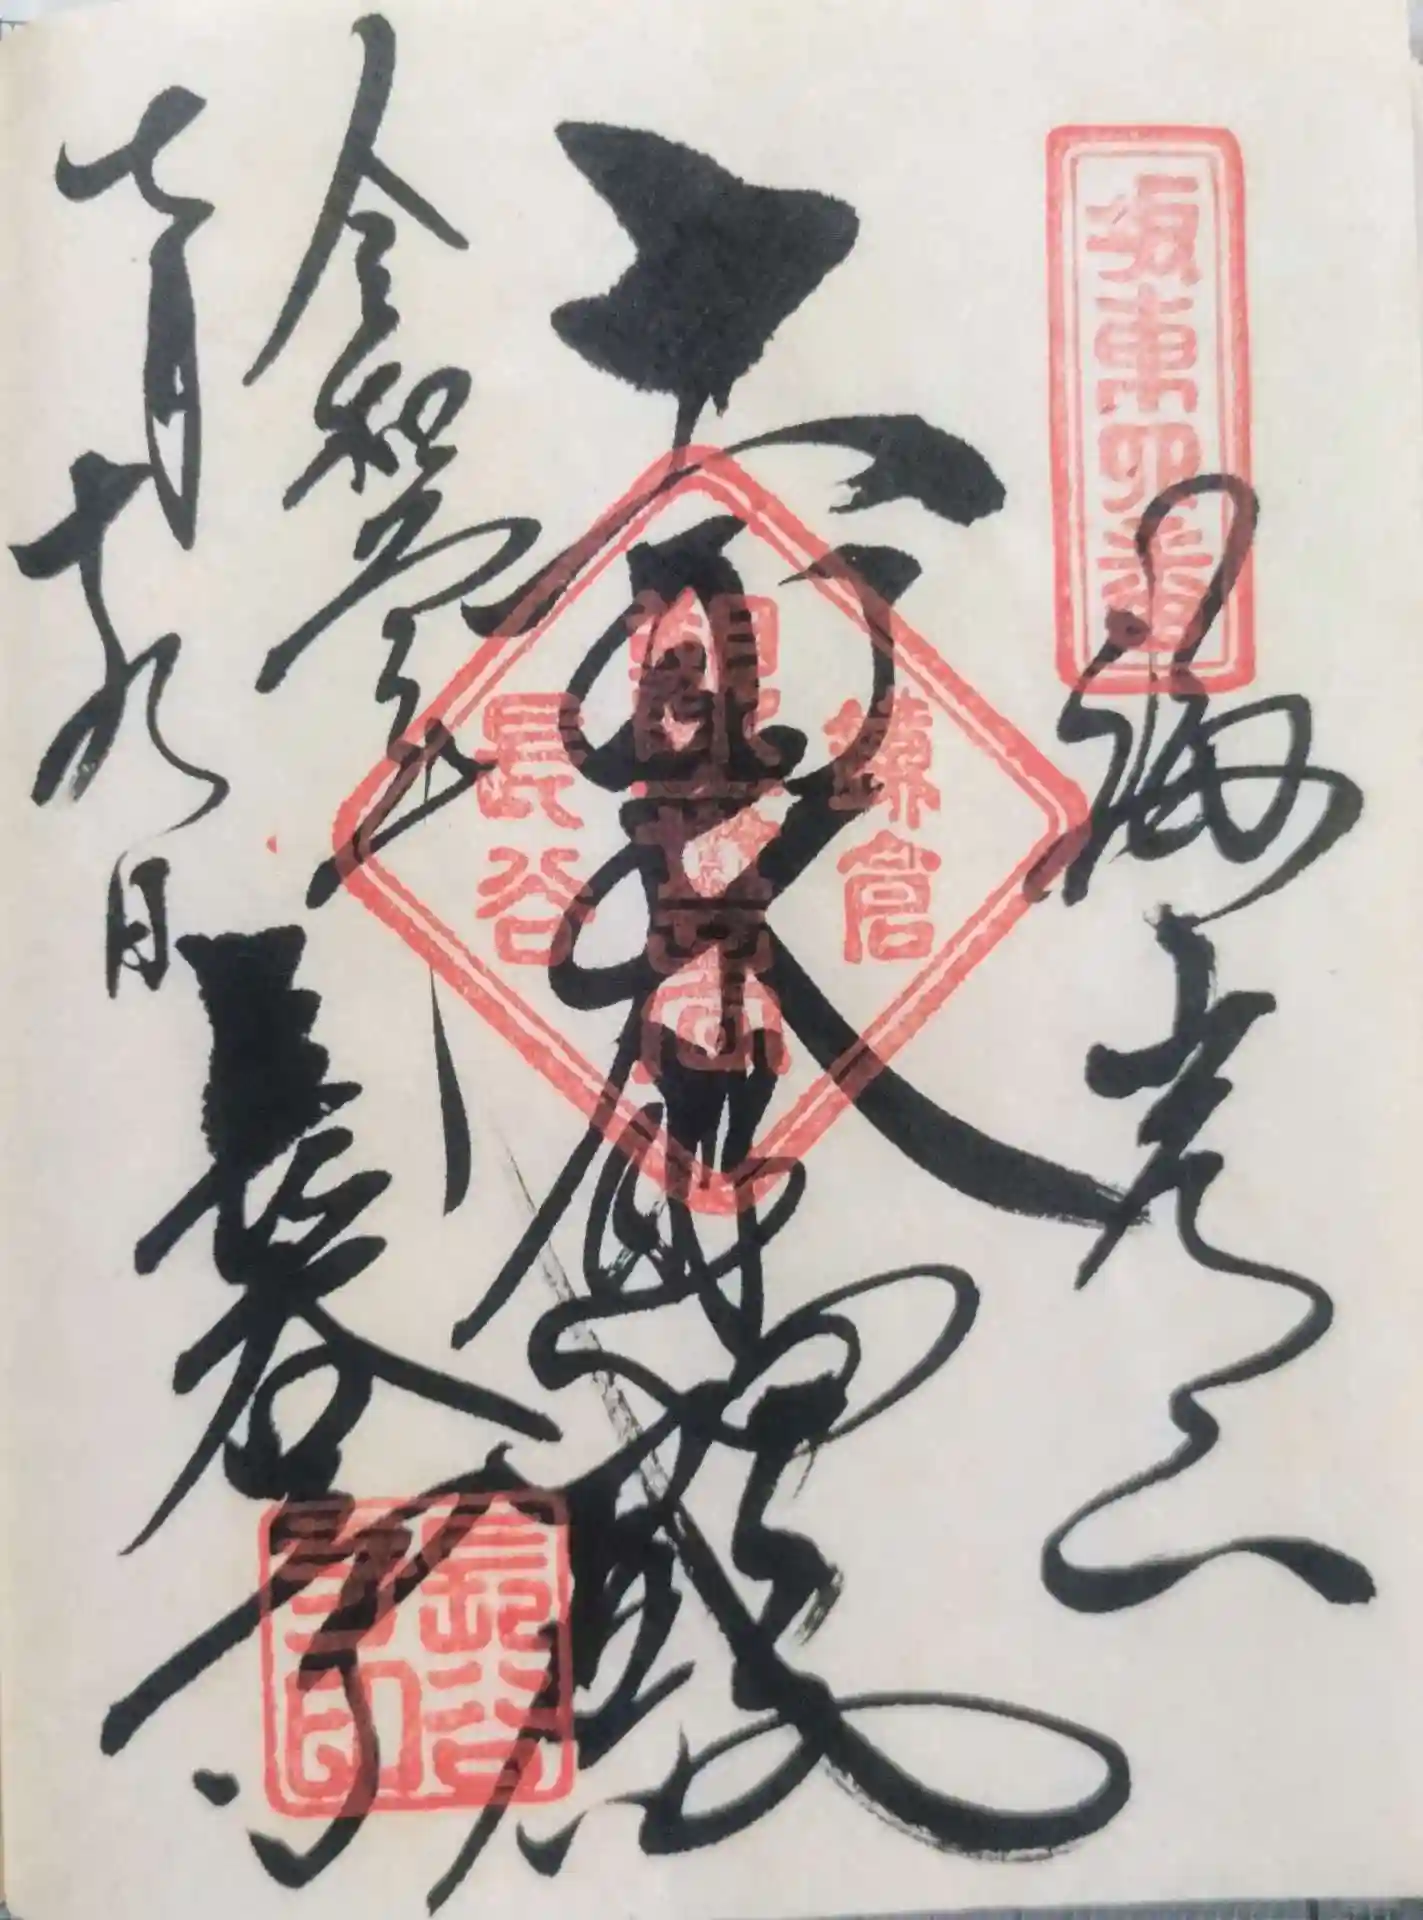 坂東四番
海光山
鎌倉
十一面大悲殿
観世音
長谷
令和
七月十九日
長谷寺
長谷寺印